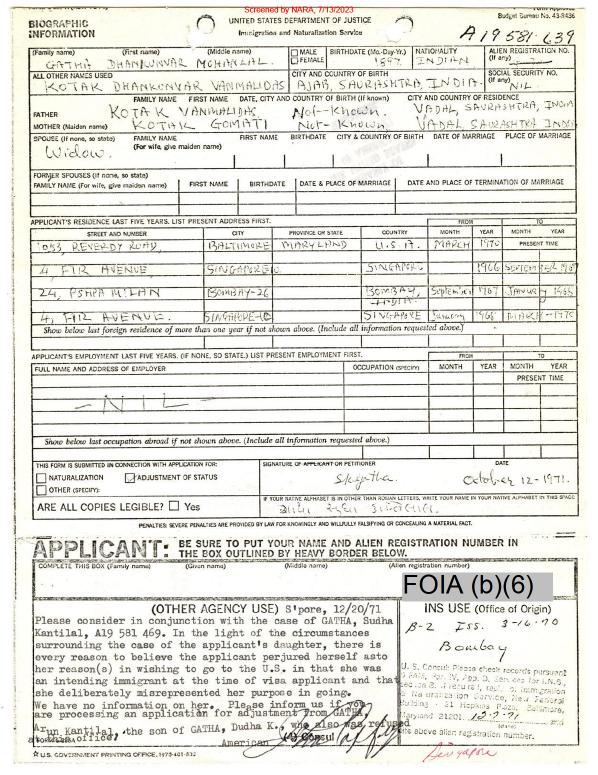 Screened by NARA, 7/13/2023
Budget Bureau No. 43-R436
BIOGRAPHIC INFORMATION
UNITED STATES DEPARTMENT OF JUSTICE
Immigration and Naturalization Service
A19 581 639
(Family name) (First name) (Middle name) MALE FEMALE BIRTHDATE (Mo.-Day-Yr.) NATIONALITY ALIEN REGISTRATION NO. (If any)
GATHA DHANKUNVAR MOHANLAL. 1897 INDIAN
ALL OTHER NAMES USED CITY AND COUNTRY OF BIRTH SOCIAL SECURITY NO. (If any)
KOTAK DHANKUNVAR VANMALIDAS AJAB, SAURASHTRA, INDIA NIL
FAMILY NAME FIRST NAME DATE, CITY AND COUNTRY OF BIRTH (If known) CITY AND COUNTRY OF RESIDENCE
FATHER KOTAK VANMALIDAS Not-Known. VADAL, SAURASHTRA, INDIA
MOTHER (Maiden name) KOTAK GOMATI Not-Known VADAL SAURASHTRA INDIA
SPOUSE (If none, so state) FAMILY NAME (For wife, give maiden name) FIRST NAME BIRTHDATE CITY & COUNTRY OF BIRTH DATE OF MARRIAGE PLACE OF MARRIAGE
Widow.
FORMER SPOUSES (If none, so state)
FAMILY NAME (For wife, give maiden name) FIRST NAME BIRTHDATE DATE & PLACE OF MARRIAGE DATE AND PLACE OF TERMINATION OF MARRIAGE
APPLICANT'S RESIDENCE LAST FIVE YEARS. LIST PRESENT ADDRESS FIRST. FROM TO
STREET AND NUMBER CITY PROVINCE OR STATE COUNTRY MONTH YEAR MONTH YEAR
1053, REVERDY ROAD, BALTIMORE MARYLAND U.S.A. MARCH 1970 PRESENT TIME
4, FIR AVENUE, SINGAPORE SINGAPORE 1966 SEPTEMBER 1967
24, PSHPA MILAN BOMBAY-26 BOMBAY, INDIA. September 1967 JANUARY 1968
4, FIR AVENUE. SINGAPORE-10 SINGAPORE January 1968 MARCH-1970
Show below last foreign residence of more than one year if not shown above. (Include all information requested above.)
APPLICANT'S EMPLOYMENT LAST FIVE YEARS. (IF NONE, SO STATE.) LIST PRESENT EMPLOYMENT FIRST. FROM TO
FULL NAME AND ADDRESS OF EMPLOYER OCCUPATION (SPECIFY) MONTH YEAR MONTH YEAR
PRESENT TIME
-NIL-
Show below last occupation abroad if not shown above. (Include all information requested above.)
THIS FORM IS SUBMITTED IN CONNECTION WITH APPLICATION FOR: SIGNATURE OF APPLICANT OR PETITIONER DATE
NATURALIZATION ADJUSTMENT OF STATUS
October 12-1971.
OTHER (SPECIFY):
IF YOUR NATIVE ALPHABET IS IN OTHER THAN ROMAN LETTERS, WRITE YOUR NAME IN YOUR NATIVE ALPHABET IN THIS SPACE
ARE ALL COPIES LEGIBLE? Yes
PENALTIES: SEVERE PENALTIES ARE PROVIDED BY LAW FOR KNOWINGLY AND WILLFULLY FALSIFYING OR CONCEALING A MATERIAL FACT.
APPLICANT: BE SURE TO PUT YOUR NAME AND ALIEN REGISTRATION NUMBER IN
THE BOX OUTLINED BY HEAVY BORDER BELOW.
COMPLETE THIS BOX (Family name) (Given name) (Middle name) (Alien registration number)
FOIA (b)(6)
(OTHER AGENCY USE) S'pore, 12/20/71
Please consider in conjunction with the case of GATHA, Sudha
Kantilal, A19 581 469. In the light of the circumstances
surrounding the case of the applicant's daughter, there is
every reason to believe the applicant perjured herself asto
her reason(s) in wishing to go to the U.S. in that she was
an intending immigrant at the time of visa applicant and that
she deliberately misrepresented her purpose in going.
We have no information on her. Please inform us if you
are processing an application for adjustment from GATHA,
Arun Kantilal, the son of GATHA, Dudha K., who also was refused
at this office.
American Consul
INS USE (Office of Origin)
B-2 Iss. 3-16-70
Bombay
U.S. Consul: Please check records pursuant
12-7-71
Singapore
U.S. GOVERNMENT PRINTING OFFICE